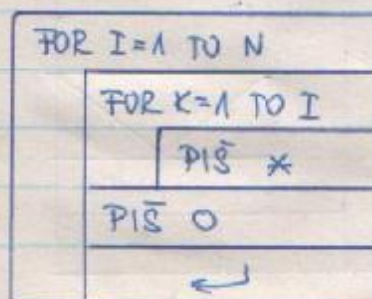 FOR I=1 TO N
FOR K=1 TO I
PIŠ *
PIŠ O
↵